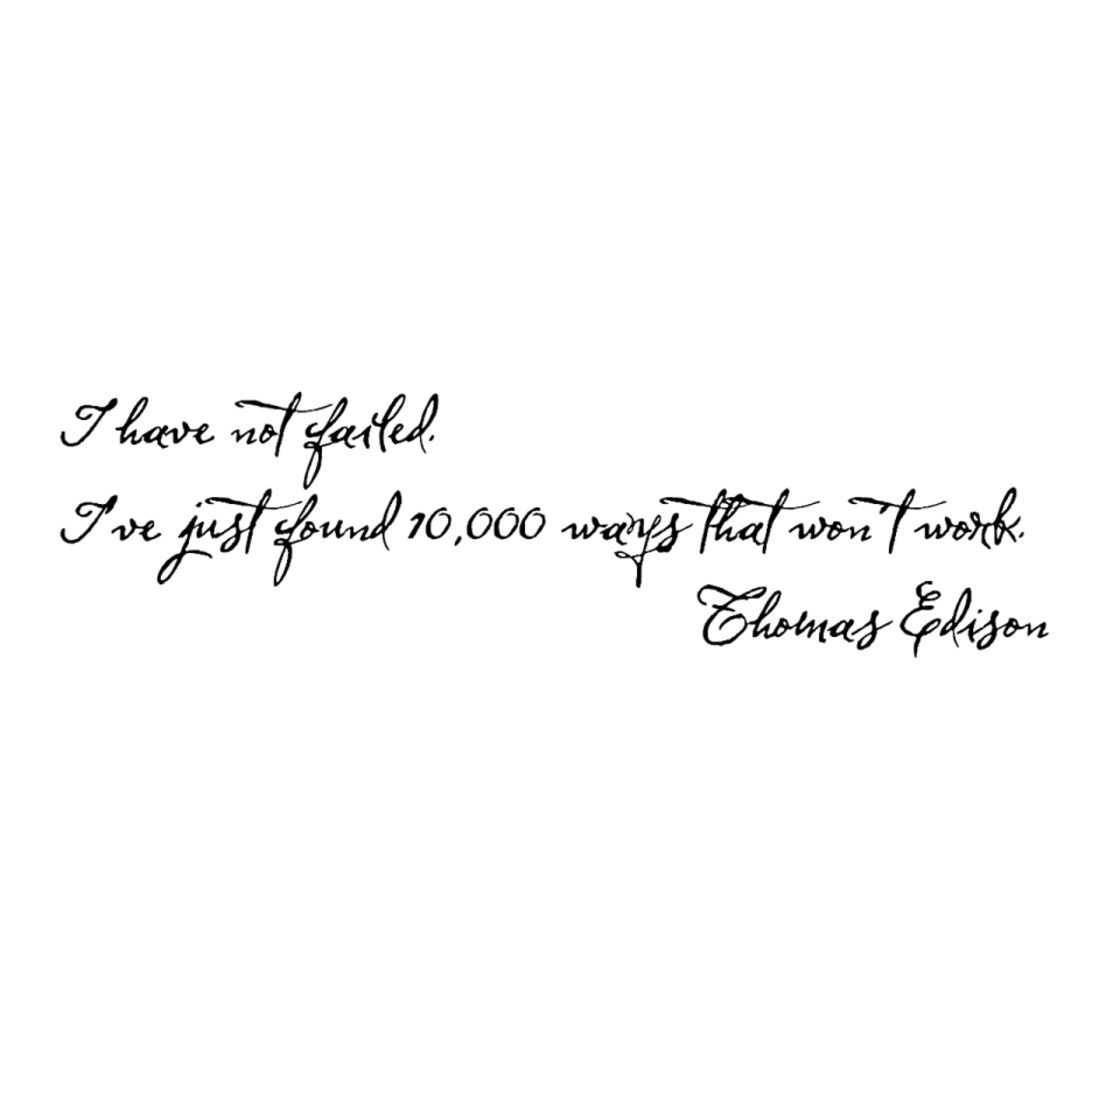 I have not failed.
I've just found 10,000 ways that won't work.
Thomas Edison